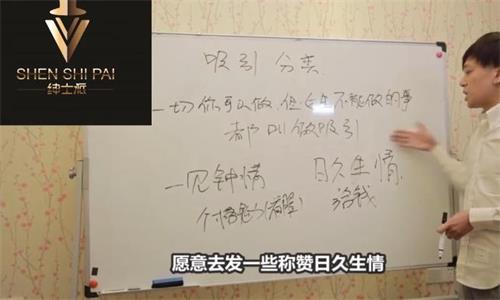 SHEN SHI PAI
绅士派
吸引 分类
一切你可以做,但女生不能做的事
都叫做吸引
一见钟情 日久生情
给钱
愿意去发一些称赞日久生情